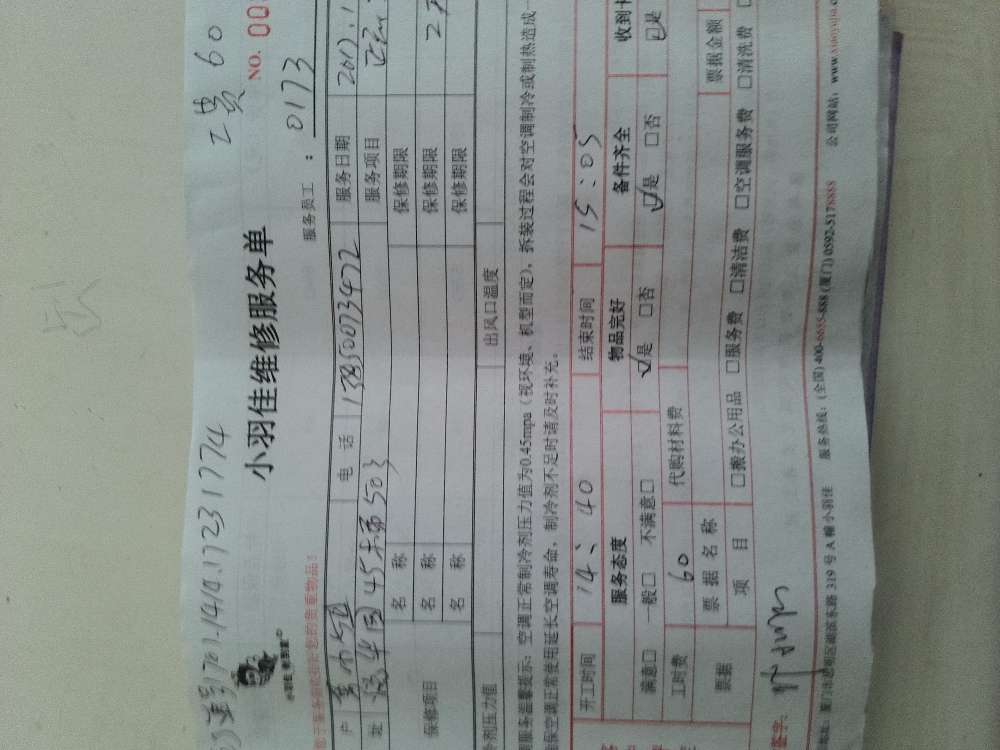 1701.141417231774
工费 60
小羽佳维修服务单
NO. 00
服务员工：0173
户
电 话 13850073472
服务日期 2017.1
址 45 503
服务项目
保修项目
名 称
保修期限
名 称
保修期限
名 称
保修期限
剂压力值
出风口温度
服务温馨提示：空调正常制冷剂压力值为0.45mpa（视环境、机型而定），拆装过程会对空调制冷或制热造成一
保空调正常使用延长空调寿命，制冷剂不足时请及时补充。
开工时间 14：40 结束时间 15：05
服务态度 物品完好 备件齐全 收到
满意□ 一般□ 不满意□ ☑是 □否 ☑是 □否 ☑是
工时费 60 代购材料费
票据 票据名称 票据金额
项 目 □搬办公用品 □服务费 □清洁费 □空调服务费 □清洗费
签字：
地址：厦门市思明区湖滨东路 319 号 A 幢小羽佳 服务热线：(全国) 400-6655-888 (厦门) 0592-5178888 公司网站：www.xiaoyujia.c